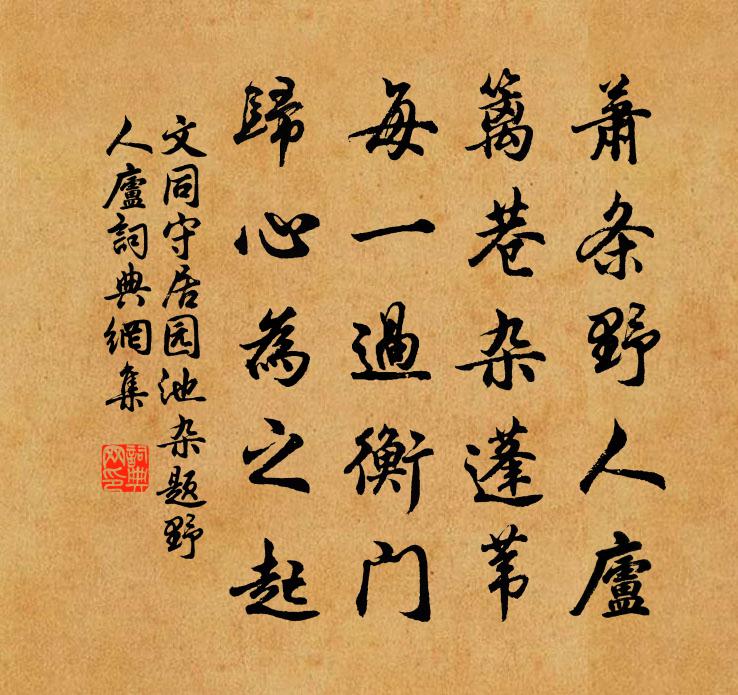 萧条野人廬
篱巷杂蓬苇
每一過衡门
歸心為之起
文同守居园池杂题野
人廬詞典網集
詞典網印